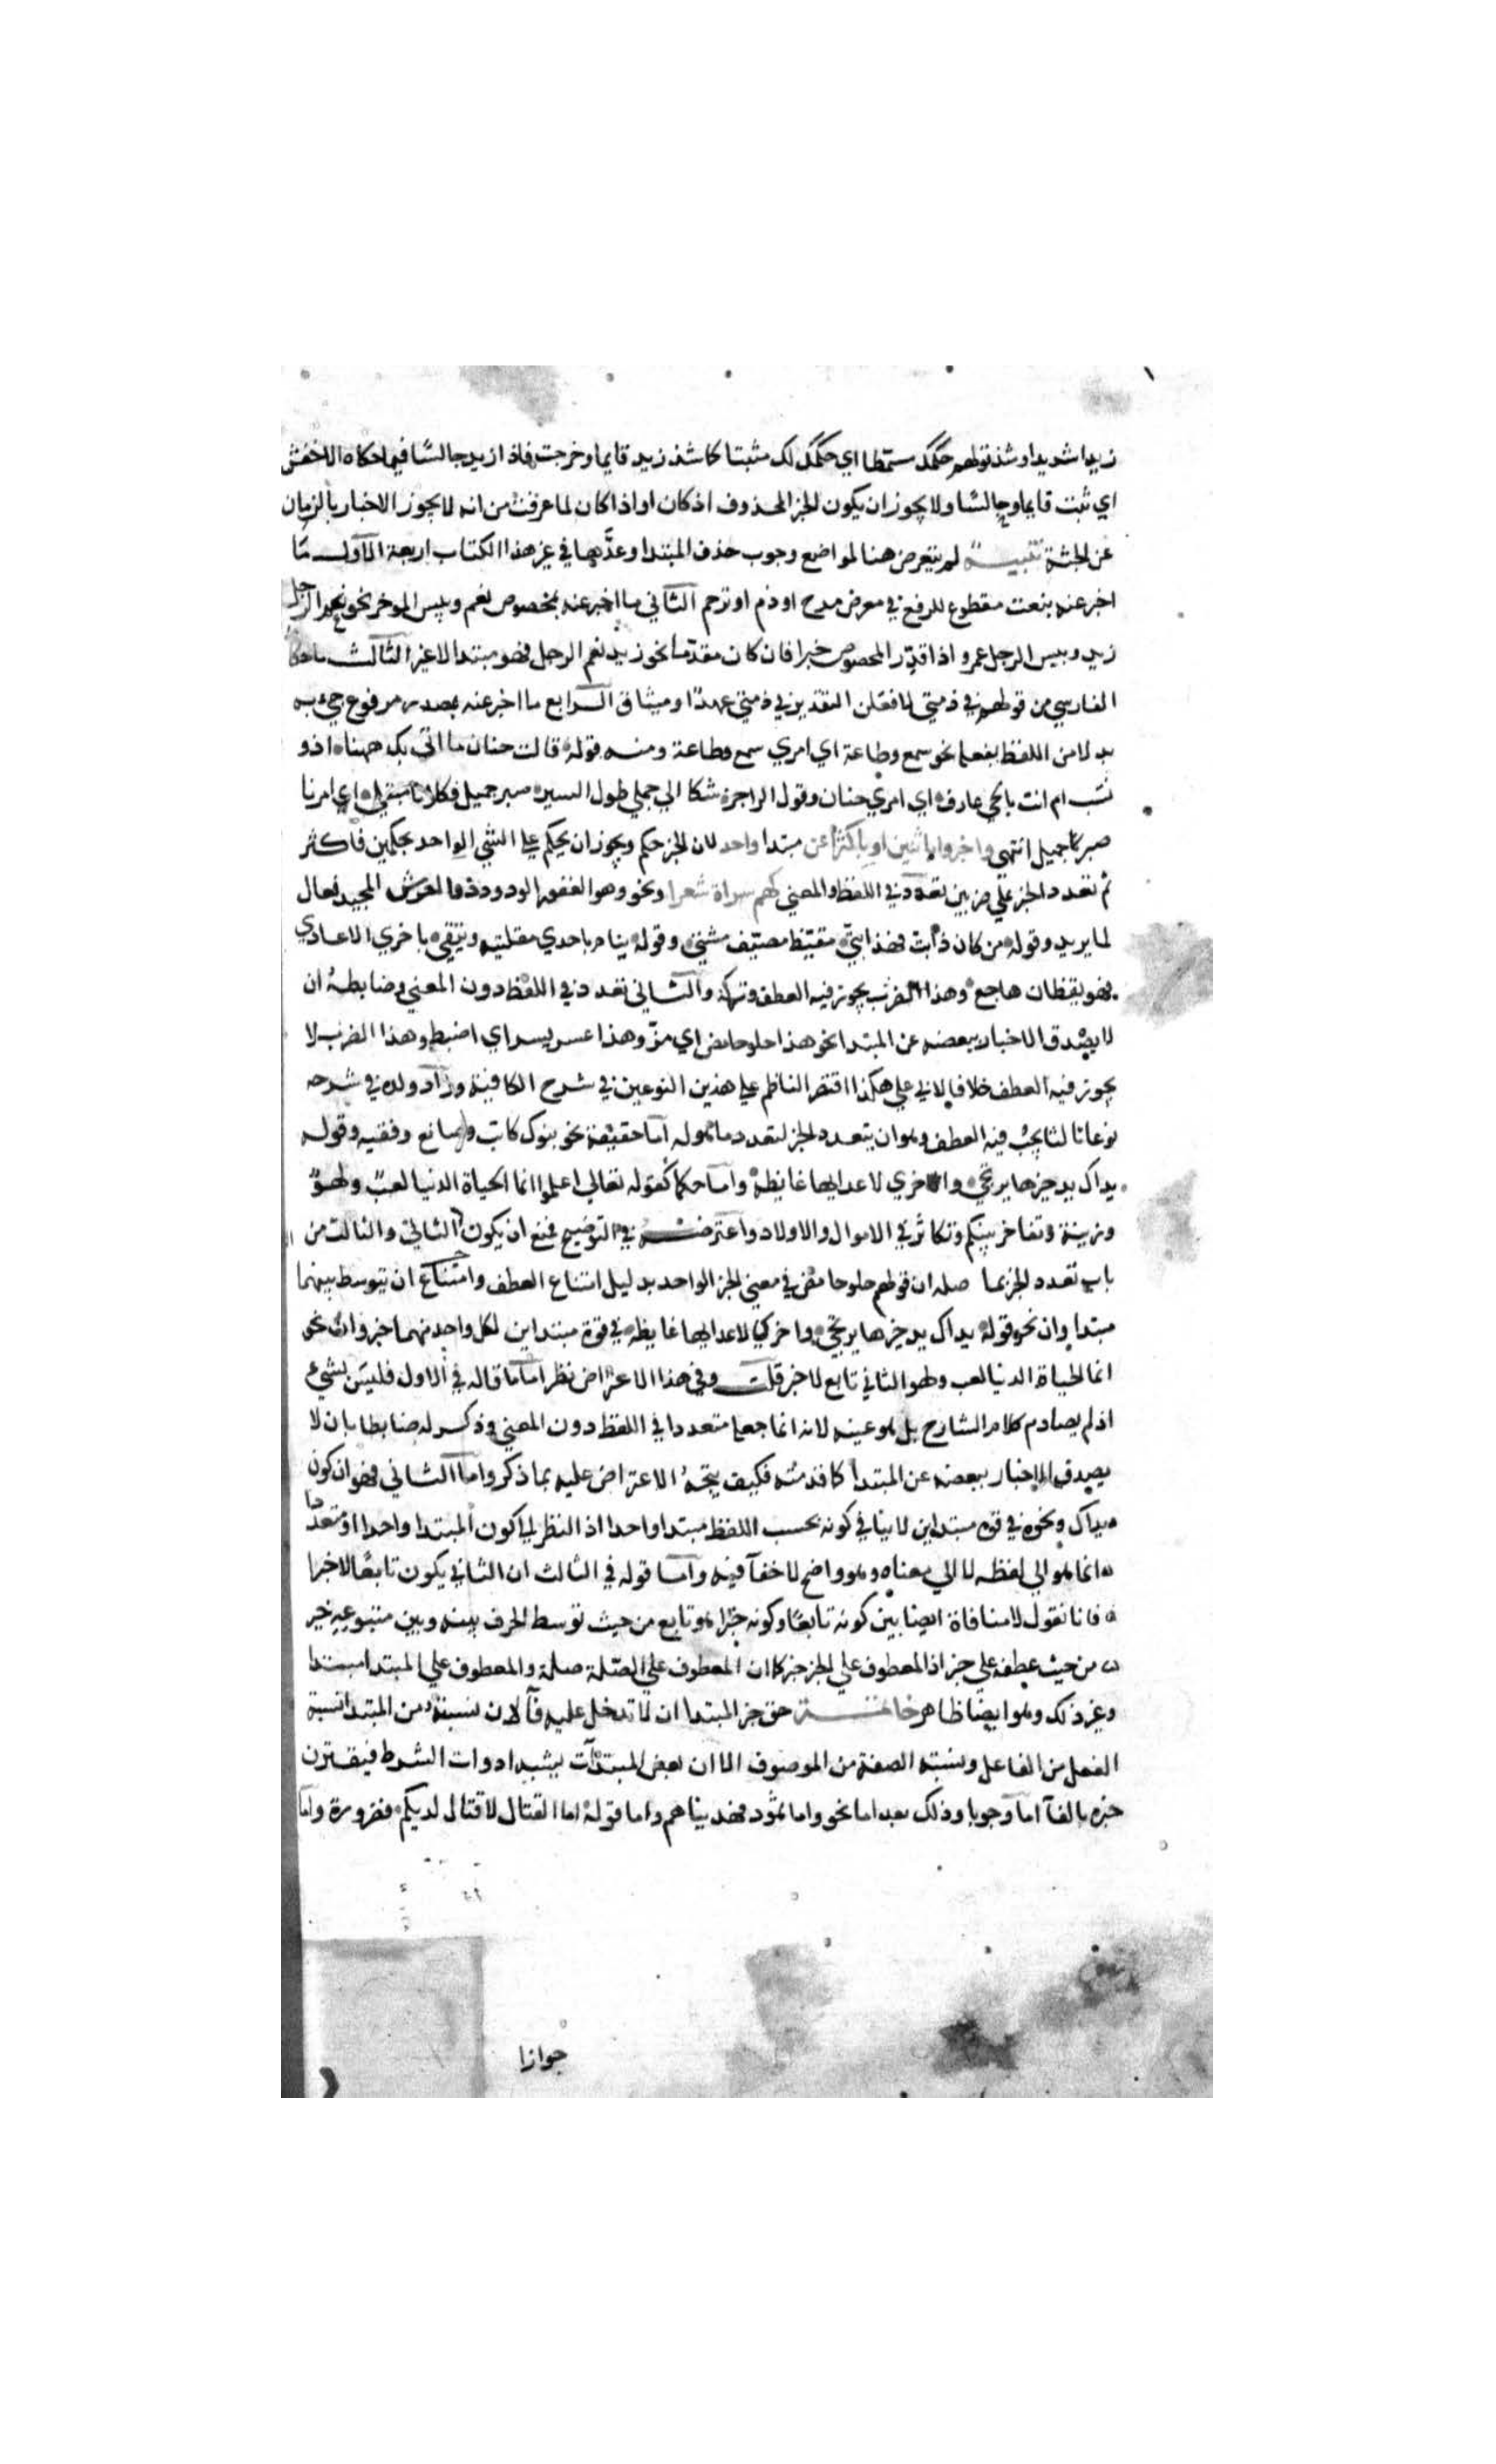 زيدا شديدا وشذ قولهم حكمك مسمّطا اي حكمك لك مثبتا كما شذ زيد قايما وخرجت فاذا زيد جالسًا فيما حكاه الاخفش
اي ثبت قايما وجالسًا ولا يجوز ان يكون الخبر المحذوف اذ كان او اذا كان لما عرفت من انه لا يجوز الاخبار بالزمان
عن الجثة تنبيه لم يتعرض هنا لمواضع وجوب حذف المبتدا وعدَّها في غير هذا الكتاب اربعة الاول ما
اخبر عنه بنعت مقطوع للرفع في معرض مدح او ذم او ترحم الثاني ما اخبر عنه بمخصوص نعم وبيس الموخر نحو نعم الرجل
زيد وبيس الرجل عمرو اذا قدّر المخصوص خبرا فان كان مقدما نحو زيد نعم الرجل فهو مبتدا لا غير الثالث ما حكاه
الفارسي من قولهم في ذمتي لافعلن التقدير في ذمتي عهد او ميثاق الرابع ما اخبر عنه بمصدر مرفوع جيء به
بدلا من اللفظ بفعله نحو سمع وطاعة اي امري سمع وطاعة ومنه قوله قالت حنان ما اتي بك ههنا اذو
نسب ام انت بالحي عارف اي امري حنان وقول الراجز شكا الي جملي طول السير صبر جميل فكلانا مبتلي اي امرنا
صبر جميل انتهي واخبروا باثنين او باكثرا عن مبتدا واحد لان الخبر حكم ويجوز ان يحكم علي الشي الواحد بحكمين فاكثر
ثم تعدد الخبر علي ضربين تعدد في اللفظ والمعني كهم سراة شعرا ونحو وهو الغفور الودود ذو العرش المجيد فعال
لما يريد وقوله من كان ذا بت فهذا بتّي مقيّظ مصيّف مشتي وقوله ينام باحدي مقلتيه ويتقي باخري الاعادي
فهو يقظان هاجع وهذا الضرب يجوز فيه العطف وتركه والثاني تعدد في اللفظ دون المعني وضابطه ان
لا يصدق الاخبار ببعضه عن المبتدا نحو هذا حلو حامض اي مزّ وهذا عسر يسر اي اضبط وهذا الضرب لا
يجوز فيه العطف خلافا لابي علي هكذا اقتصر الناظم علي هذين النوعين في شرح الكافية وزاد ولده في شرحه
نوعا ثالثا يجب فيه العطف وهو ان يتعدد الخبر لتعدد ما هو له اما حقيقة نحو بنوك كاتب وصانع وفقيه وقوله
يداك يد خيرها يرتجي واخري لاعدايها غايظه واما حكما كقوله تعالي اعلموا انما الحياة الدنيا لعب ولهو
وزينة وتفاخر بينكم وتكاثر في الاموال والاولاد واعترضه في التوضيح فمنع ان يكون الثاني والثالث من
باب تعدد الخبر بما حاصله ان قولهم حلو حامض في معني الخبر الواحد بدليل امتناع العطف وامتناع ان يتوسط بينهما
مبتدا وان نحو قوله يداك يد خيرها يرتجي واخري لاعدايها غايظه في قوة مبتداين لكل واحد منهما خبر وان نحو
انما الحياة الدنيا لعب ولهو الثاني تابع لا خبر قلت وفي هذا الاعتراض نظر اما ما قاله في الاول فليس بشيء
اذ لم يصادم كلام الشارح بل هو عينه لانه انما جعله متعددا في اللفظ دون المعني وذكر له ضابطا بان لا
يصدق الاخبار ببعضه عن المبتدا كما قدمته فكيف يتجه الاعتراض عليه بما ذكر واما الثاني فهو ان كون
يداك ونحوه في قوة مبتداين لا ينافي كونه بحسب اللفظ مبتدا واحدا اذ النظر الي كون المبتدا واحدا او متعددا
انما هو الي لفظه لا الي معناه وهو واضح لا خفآ فيه واما قوله في الثالث ان الثاني يكون تابعًا لا خبرا
فانا نقول لا منافاة ايضا بين كونه تابعًا وكونه خبرا هو تابع من حيث توسط الحرف بينه وبين متبوعه خبر
من حيث عطفه علي خبر اذ المعطوف علي الخبر خبر كما ان المعطوف علي الصلة صلة والمعطوف علي المبتدا مبتدا
وغير ذلك وهو ايضا ظاهر خاتمة حق خبر المبتدا ان لا تدخل عليه فآ لان نسبته من المبتدا نسبة
الفعل من الفاعل ونسبة الصفة من الموصوف الا ان بعض المبتدآت يشبه ادوات الشرط فيقترن
خبره بالفآ اما وجوبا وذلك بعد اما نحو واما ثمود فهديناهم واما قوله اما القتال لا قتال لديكم فضرورة واما
جوازا